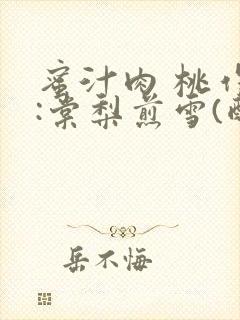 蜜汁肉桃作
:棠梨煎雪(
岳不悔